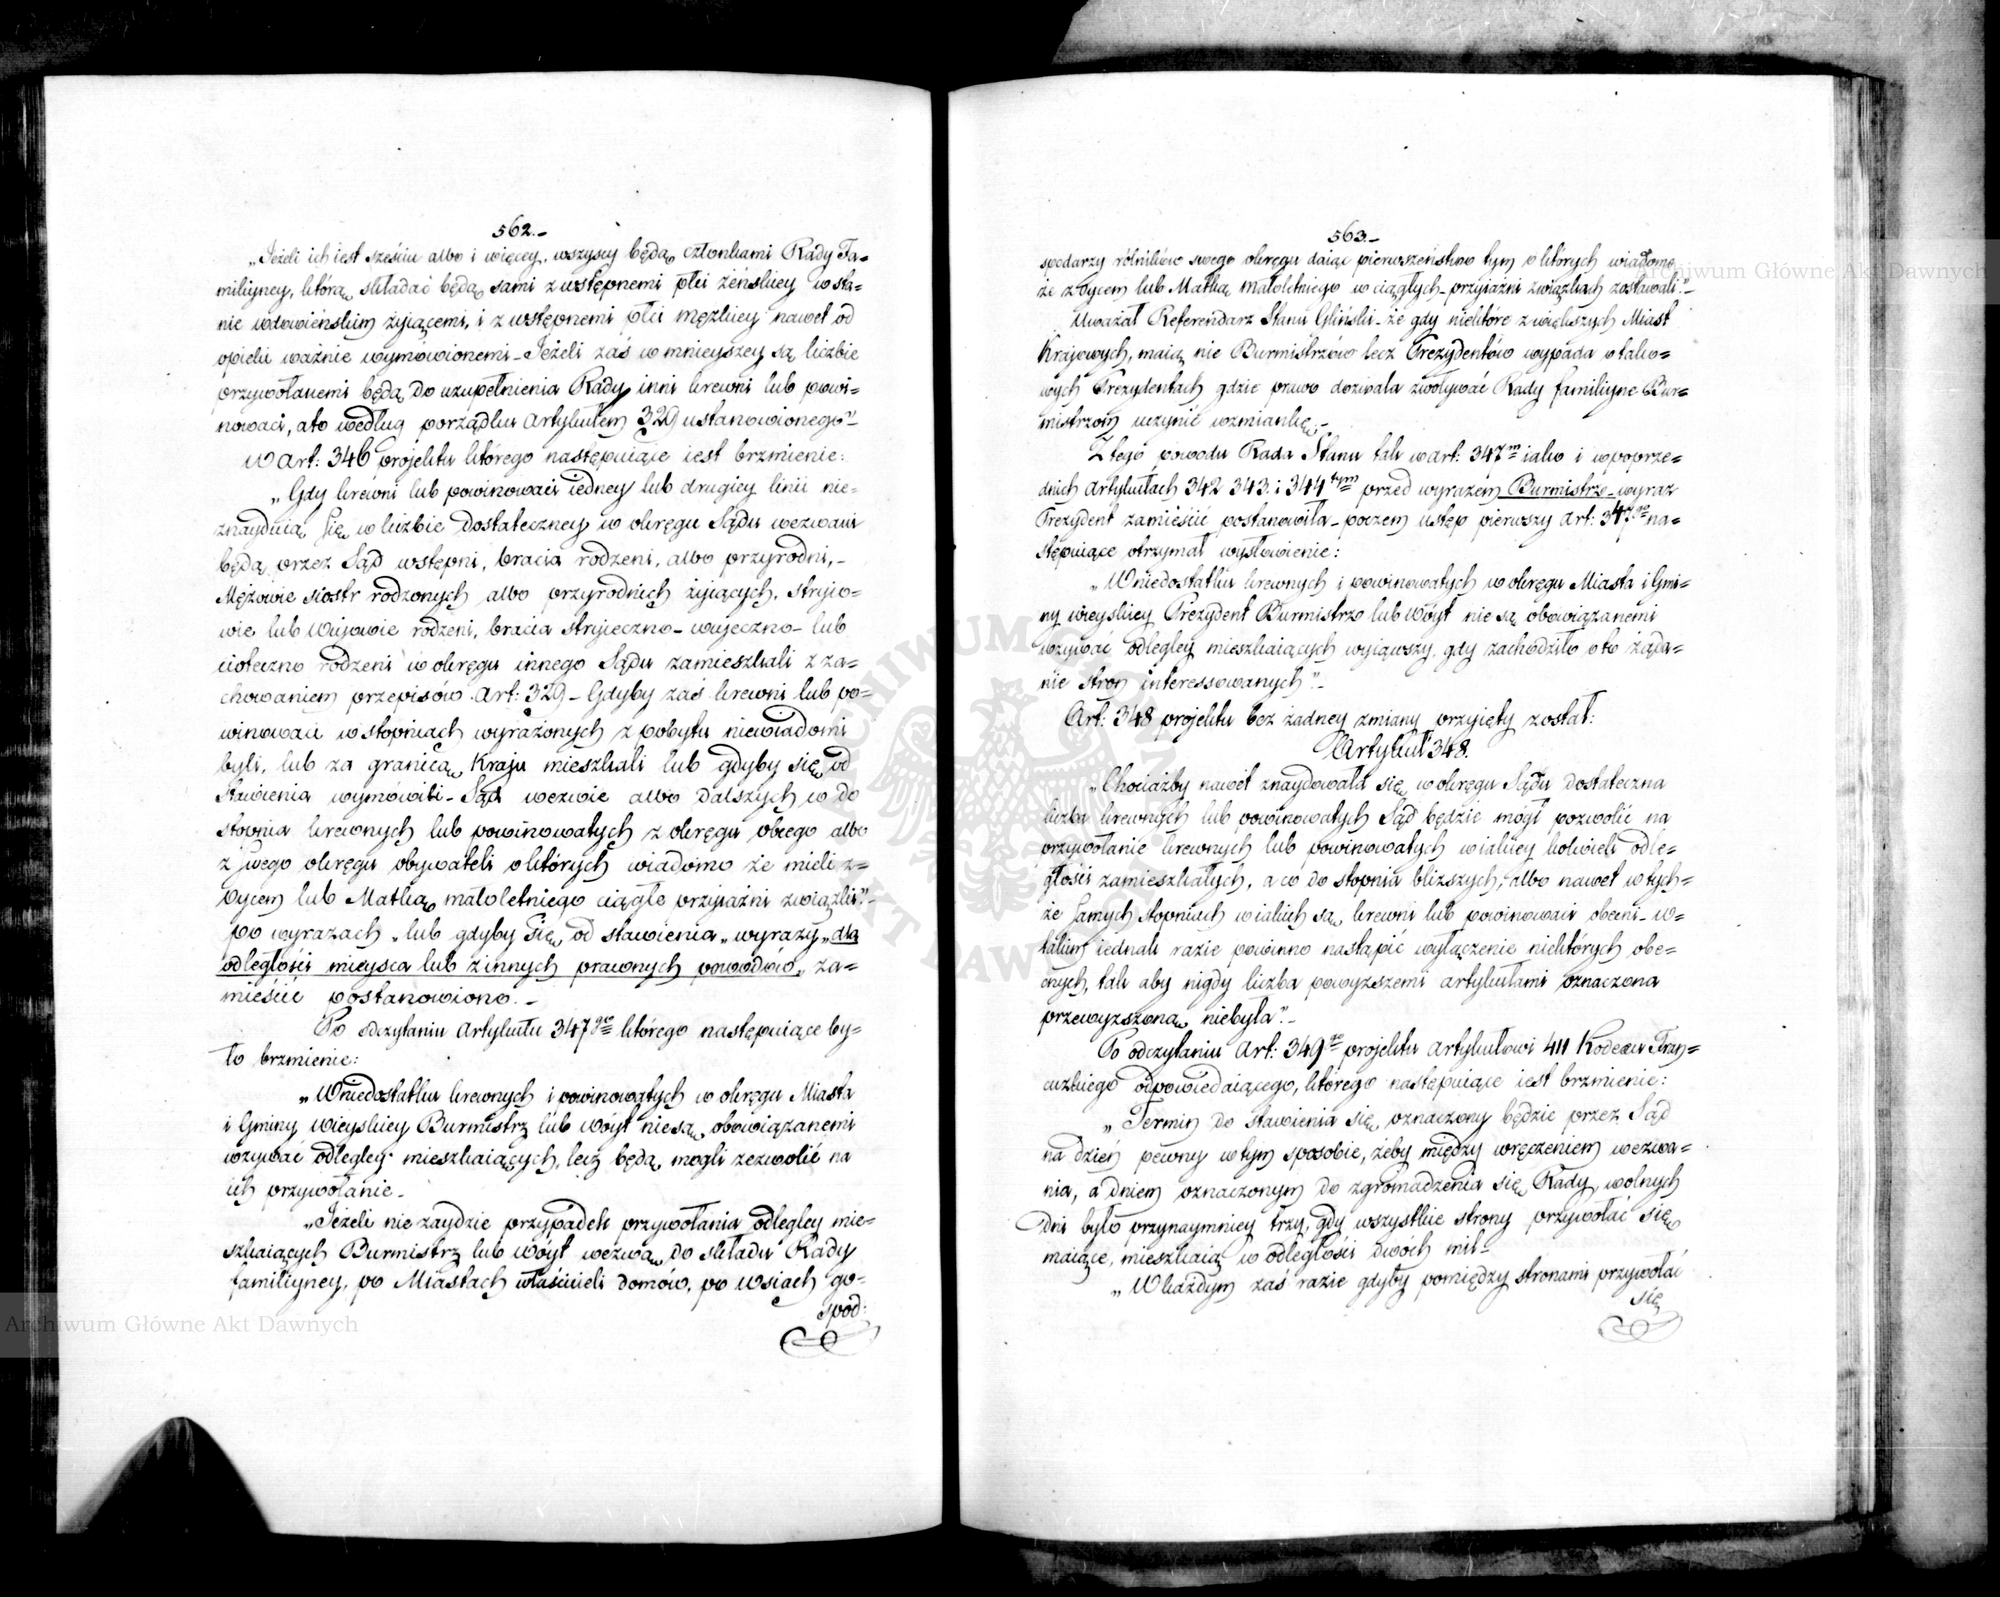 562.-
„Jeżeli ich iest sześciu albo i więcey, wszyscy będą członkami Rady Fa=
miliyney, którą składać będą sami z wstępnemi płci żeńskiey w sta=
nie wdowieńskim żyiącemi, i z wstępnemi płci męzkiey nawet od
opieki ważnie wymówionemi_ Jeżeli zaś w mnieyszey są liczbie
przywołanemi będą do uzupełnienia Rady inni krewni lub powi=
nowaci, a to według porządku Artykułem 329 ustanowionego"_
W Art: 346 projektu którego następuiące iest brzmienie:
„Gdy krewni lub powinowaci iedney lub drugiey linii nie=
znayduią się w liczbie dostateczney w okręgu Sądu wezwani
będą przez Sąd wstępni, bracia rodzeni, albo przyrodni,_
Mężowie siostr rodzonych albo przyrodnich żyiących, stryio=
wie lub Wujowie rodzeni, bracia stryieczno_ wujeczno_ lub
cioteczno rodzeni w okręgu innego Sądu zamieszkali z za=
chowaniem przepisów Art: 329_ Gdyby zaś krewni lub po=
winowaci w stopniach wyrażonych z pobytu niewiadomi
byli, lub za granicą Kraju mieszkali lub gdyby się od
stawienia wymówili_ Sąd wezwie albo dalszych w do
stopnia krewnych lub powinowatych z okręgu obcego albo
z swego okręgu obywateli o których wiadomo że mieli z=
Oycem lub Matką małoletniego ciągłe przyiaźni związki"_
po wyrazach „lub gdyby się od stawienia„ wyrazy „dla
odległości mieysca lub z innych prawnych powodów„ za=
mieścić postanowiono._
Po odczytaniu Artykułu 347go którego następuiące by=
ło brzmienie:
„W niedostatku krewnych i powinowatych w okręgu Miasta
i Gminy wieyskiey Burmistrz lub Wóyt nie są obowiązanemi
wzywać odległey mieszkaiących, lecz będą mogli zezwolić na
ich przywołanie_
„Jeżeli nie zaydzie przypadek przywołania odległey mie=
szkaiących Burmistrz lub Wóyt wezwą do składu Rady
familiyney, po Miastach właścicieli domów, po wsiach go=
spod:
563.-
spodarzy rólników swego okręgu daiąc pierwszeństwo tym o których wiadomo
że z Oycem lub Matką małoletniego w ciągłych przyiaźni związkach zostawali"_
Uważał Referendarz Stanu Gliński_ że gdy niektóre z większych Miast
Krajowych, maią nie Burmistrzów lecz Prezydentów wypada o tako=
wych Prezydentach gdzie prawo dozwala zwoływać Rady familiyne Bur=
mistrzom uczynić wzmiankę._
Z tego powodu Rada Stanu tak w Art: 347m iako i w poprze=
dnich Artykułach 342 343. i 344tym przed wyrazem Burmistrz_ wyraz
Prezydent zamieścić postanowiła_ poczem wstęp pierwszy Art: 347go na=
stępuiące otrzymał wysłowienie:
„W niedostatku krewnych i powinowatych w okręgu Miasta i Gmi=
ny wieyskiey Prezydent Burmistrz lub Wóyt nie są obowiązanemi
wzywać odległey mieszkaiących wyiąwszy, gdy zachodziło o to żąda=
nie stron interessowanych"_
Art: 348 projektu bez żadney zmiany przyięty został:
Artykuł 348.
„Chociażby nawet znaydowała się w okręgu Sądu dostateczna
liczba krewnych lub powinowatych Sąd będzie mógł pozwolić na
przywołanie krewnych lub powinowatych w iakiey kolwiek odle=
głości zamieszkałych, a co do stopnia bliższych, albo nawet w tych=
że samych stopniach w iakich są krewni lub powinowaci obecni_ w=
takim iednak razie powinno nastąpić wyłączenie niektórych obe=
cnych, tak aby nigdy liczba powyższemi artykułami oznaczona
przewyższoną niebyła"_
Po odczytaniu Art: 349go projektu Artykułowi 411 Kodexu Fran=
cuzkiego odpowiedaiącego, którego następuiące iest brzmienie:
„Termin do stawienia się oznaczony będzie przez Sąd
na dzień pewny w tym sposobie, żeby między wręczeniem wezwa=
nia, a dniem oznaczonym do zgromadzenia się Rady, wolnych
dni było przynaymniey trzy, gdy wszystkie strony przywołać się
maiące, mieszkaią w odległości dwóch mil_
„W każdym zaś razie gdyby pomiędzy stronami przywołać
się
Archiwum Główne Akt Dawnych
Archiwum Główne Akt Dawnych